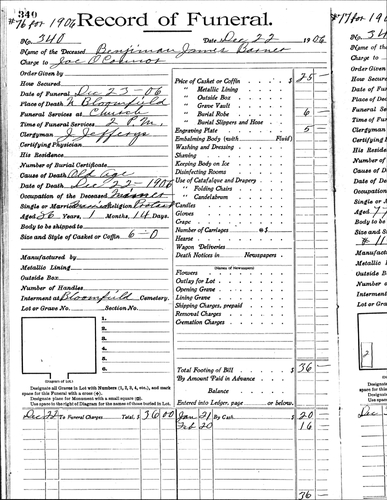 340
#76 for 1906
Record of Funeral.
No. 340 Date Dec 22 1906
Name of the Deceased Benjiman James Barner
Charge to Joe O'Connor
Order Given by
How Secured
Date of Funeral Dec 23-06
Place of Death N Bloomfield
Funeral Services at Church
Time of Funeral Services 2 P.M.
Clergyman J Jefferys
Certifying Physician
His Residence
Number of Burial Certificate
Cause of Death Old Age
Date of Death Dec 22-1906
Occupation of the Deceased
Single or Married Religion Protest
Aged 86 Years, 1 Months, 14 Days.
Body to be shipped to
Size and Style of Casket or Coffin 6-0
Manufactured by
Metallic Lining
Outside Box
Number of Handles
Interment at Bloomfield Cemetery.
Lot or Grave No. Section No.
1.
2.
3.
4.
5.
6.
(Diagram of Lot.)
Designate all Graves in Lot with Numbers (1, 2, 3, 4, etc.), and mark
space for this Funeral with a cross (+).
Designate place for Monument with a small square (□).
Use space to the right of Diagram for the names of those buried in Lot.
Price of Casket or Coffin $ 25 -
" Metallic Lining
" Outside Box
" Grave Vault
" Burial Robe 6 -
" Burial Slippers and Hose
Engraving Plate 5 -
Embalming Body (with Fluid)
Washing and Dressing
Shaving
Keeping Body on Ice
Disinfecting Rooms
Use of Catafalque and Drapery
" Folding Chairs
" Candelabrum
Candles
Gloves
Crape
Number of Carriages @ $
Hearse
Wagon Deliveries
Death Notices in Newspapers
(Names of Newspapers)
Flowers
Outlay for Lot
Opening Grave
Lining Grave
Shipping Charges, prepaid
Removal Charges
Cremation Charges
Total Footing of Bill $ 36 -
By Amount Paid in Advance
Balance
Entered into Ledger, page or below.
Dec 22 To Funeral Charges Total, $ 36 00 Jan 21 By Cash $ 20
Feb 20 16
36 -
#17 for 19
No. 34
Name of
Charge to
Order Given
How Secured
Date of Fun
Place of De
Funeral Se
Time of Fu
Clergyman
Certifying
His Reside
Number of
Cause of D
Date of De
Occupation
Single or M
Aged 77
Body to be
Size and St
# 11
Manufactur
Metallic
Outside Bo
Number of
Interment
Lot or Grav
Design
space for t
Design
Use spa
Dec